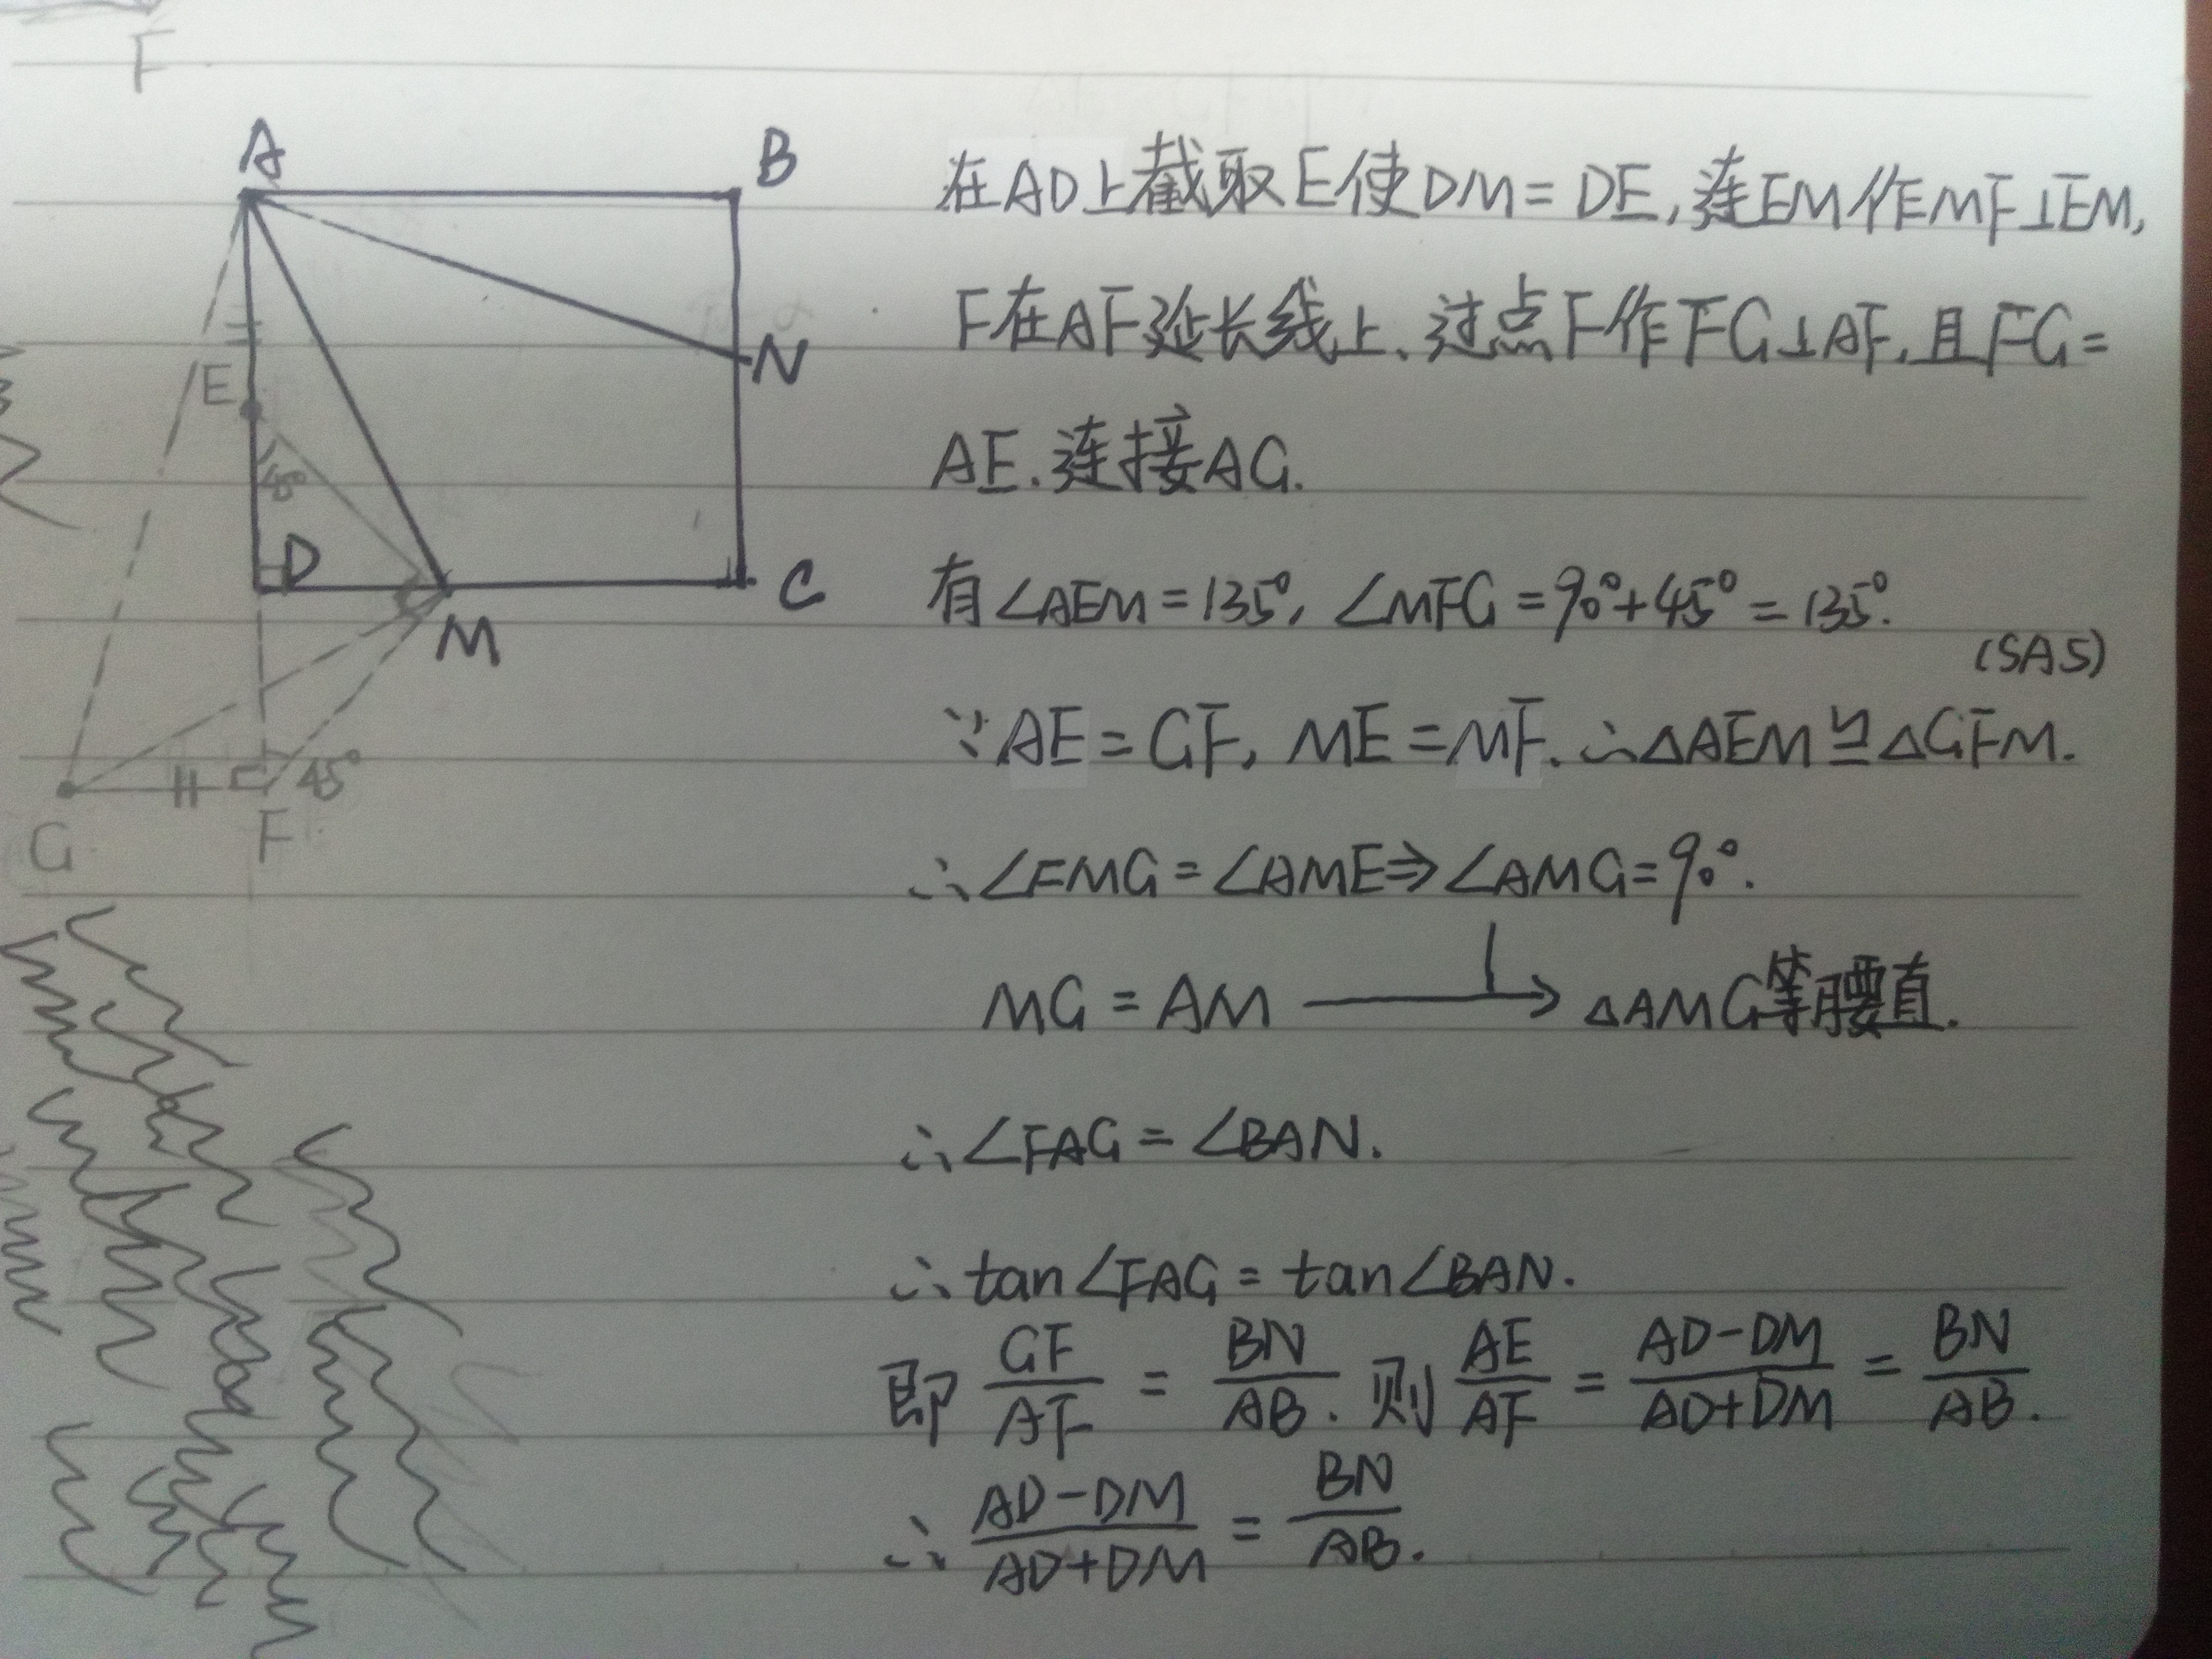 F
A
B
N
E
45°
D
C
M
45°
G
F
在AD上截取E使DM=DE,连EM作MF⊥EM,
F在AF延长线上.过点F作FG⊥AF,且FG=
AE.连接AG.
有∠AEM=135°,∠MFG=90°+45°=135°.
(SAS)
∵AE=GF, ME=MF.∴△AEM≌△GFM.
∴∠FMG=∠AME⇒∠AMG=90°.
MG=AM→△AMG等腰直.
∴∠FAG=∠BAN.
∴tan∠FAG=tan∠BAN.
即 GF/AF = BN/AB. 则 AE/AF = AD-DM/AD+DM = BN/AB.
∴ AD-DM/AD+DM = BN/AB.